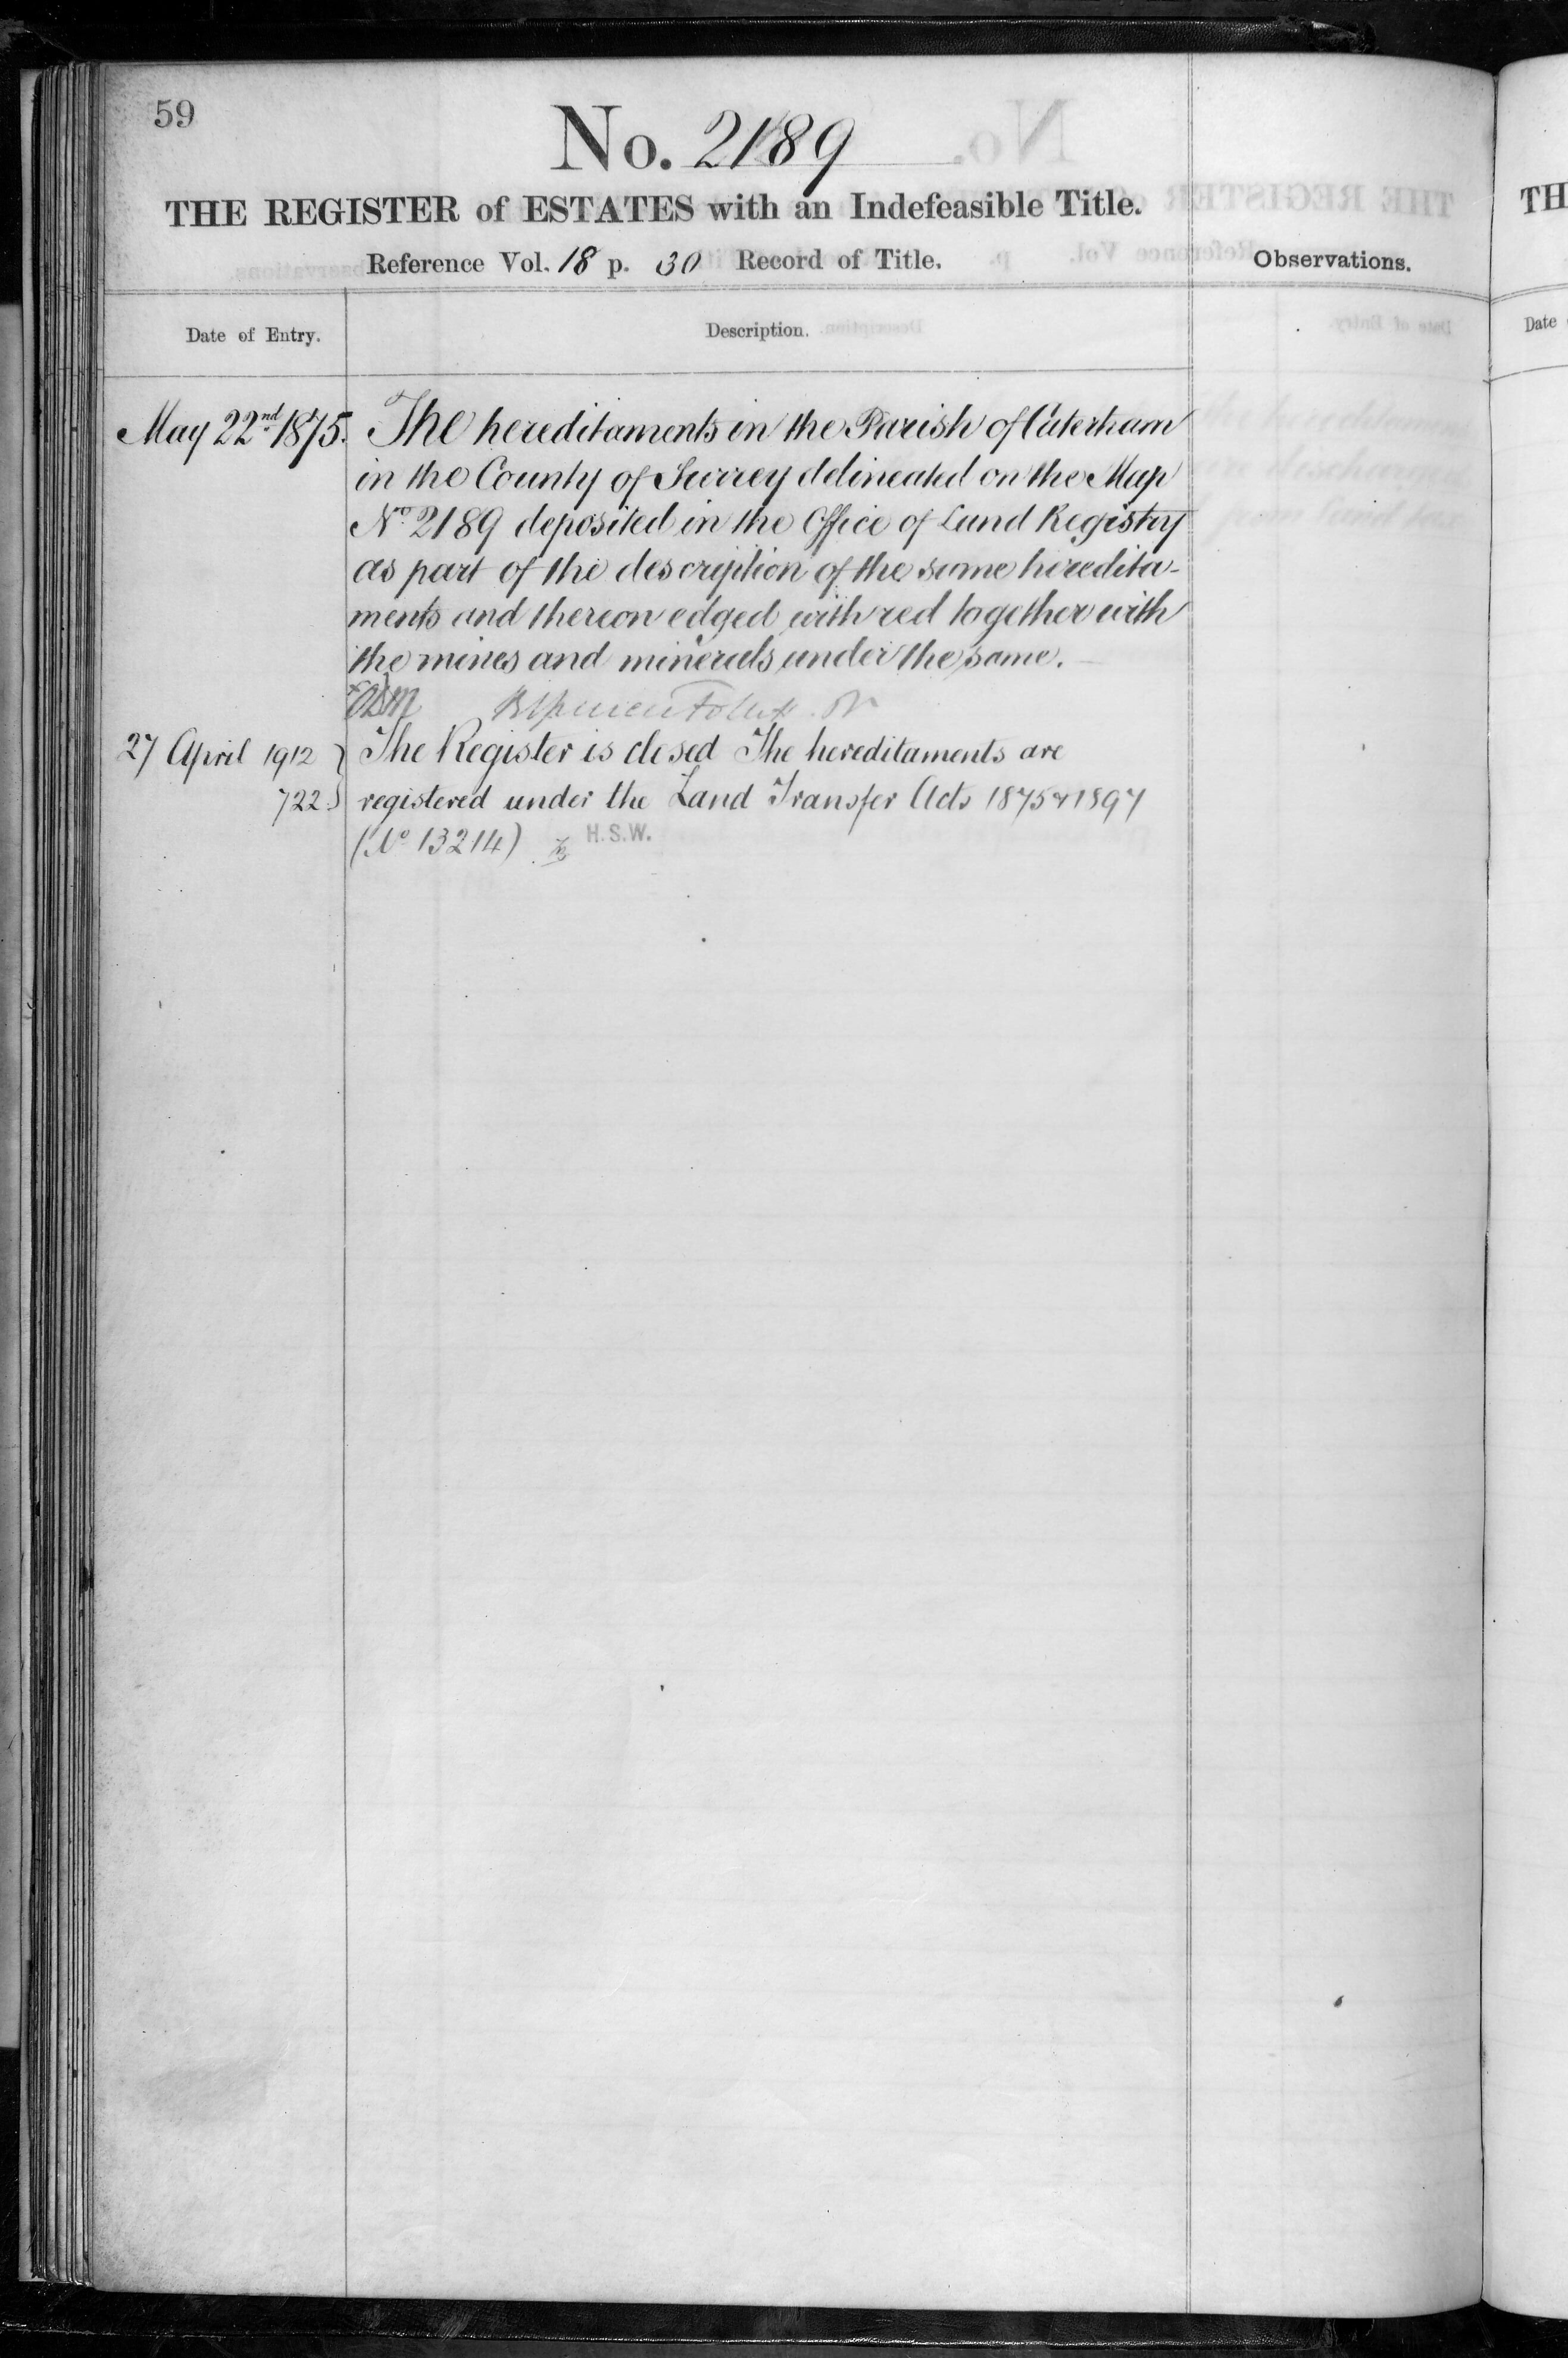 59
No. 2189
THE REGISTER of ESTATES with an Indefeasible Title.
Reference Vol. 18 p. 30 Record of Title.
Observations.
Date of Entry.
Description.
May 22nd 1875. The hereditaments in the Parish of Caterham
in the County of Surrey delineated on the Map
No. 2189 deposited in the Office of Land Registry
as part of the description of the same heredita-
ments and thereon edged with red together with
the mines and minerals under the same.
27 April 1912 } The Register is closed The hereditaments are
722 } registered under the Land Transfer Acts 1875 & 1897
(No 13214) H.S.W.
TH
Date